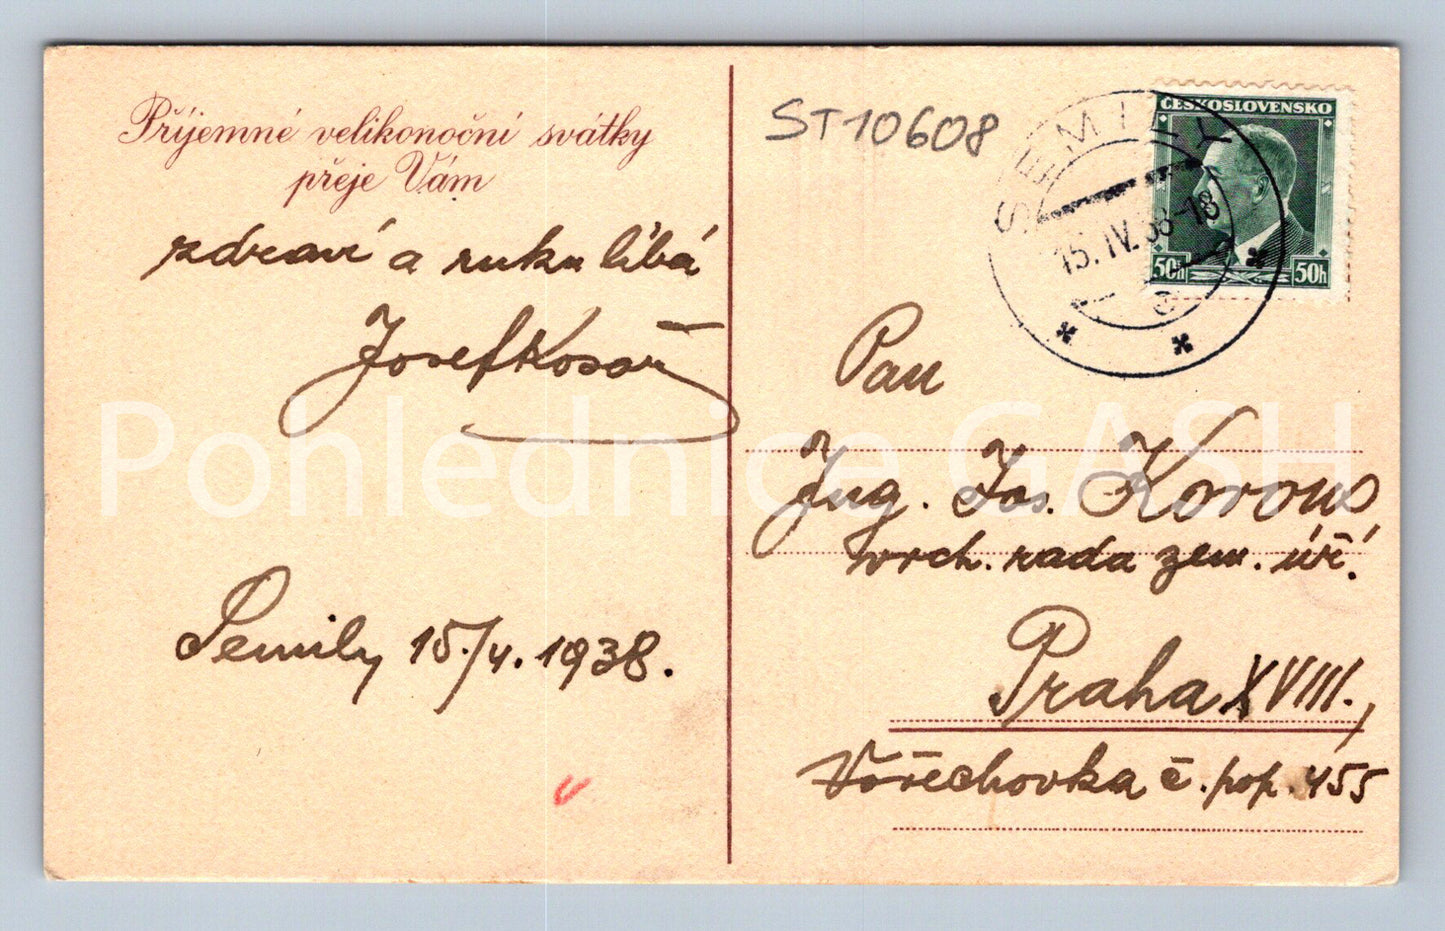 Příjemné velikonoční svátky
přeje Vám
zdraví a ruku líbá
Josef Kosař
Semily 15./4. 1938.
ST10608
SEMILY
15.IV.38-18
c
ČESKOSLOVENSKO
50h 50h
Pan
Ing. Jos. Korous
vrch. rada zem. úř.
Praha XVIII.,
Vořechovka č. pop. 455
Pohlednice GASH